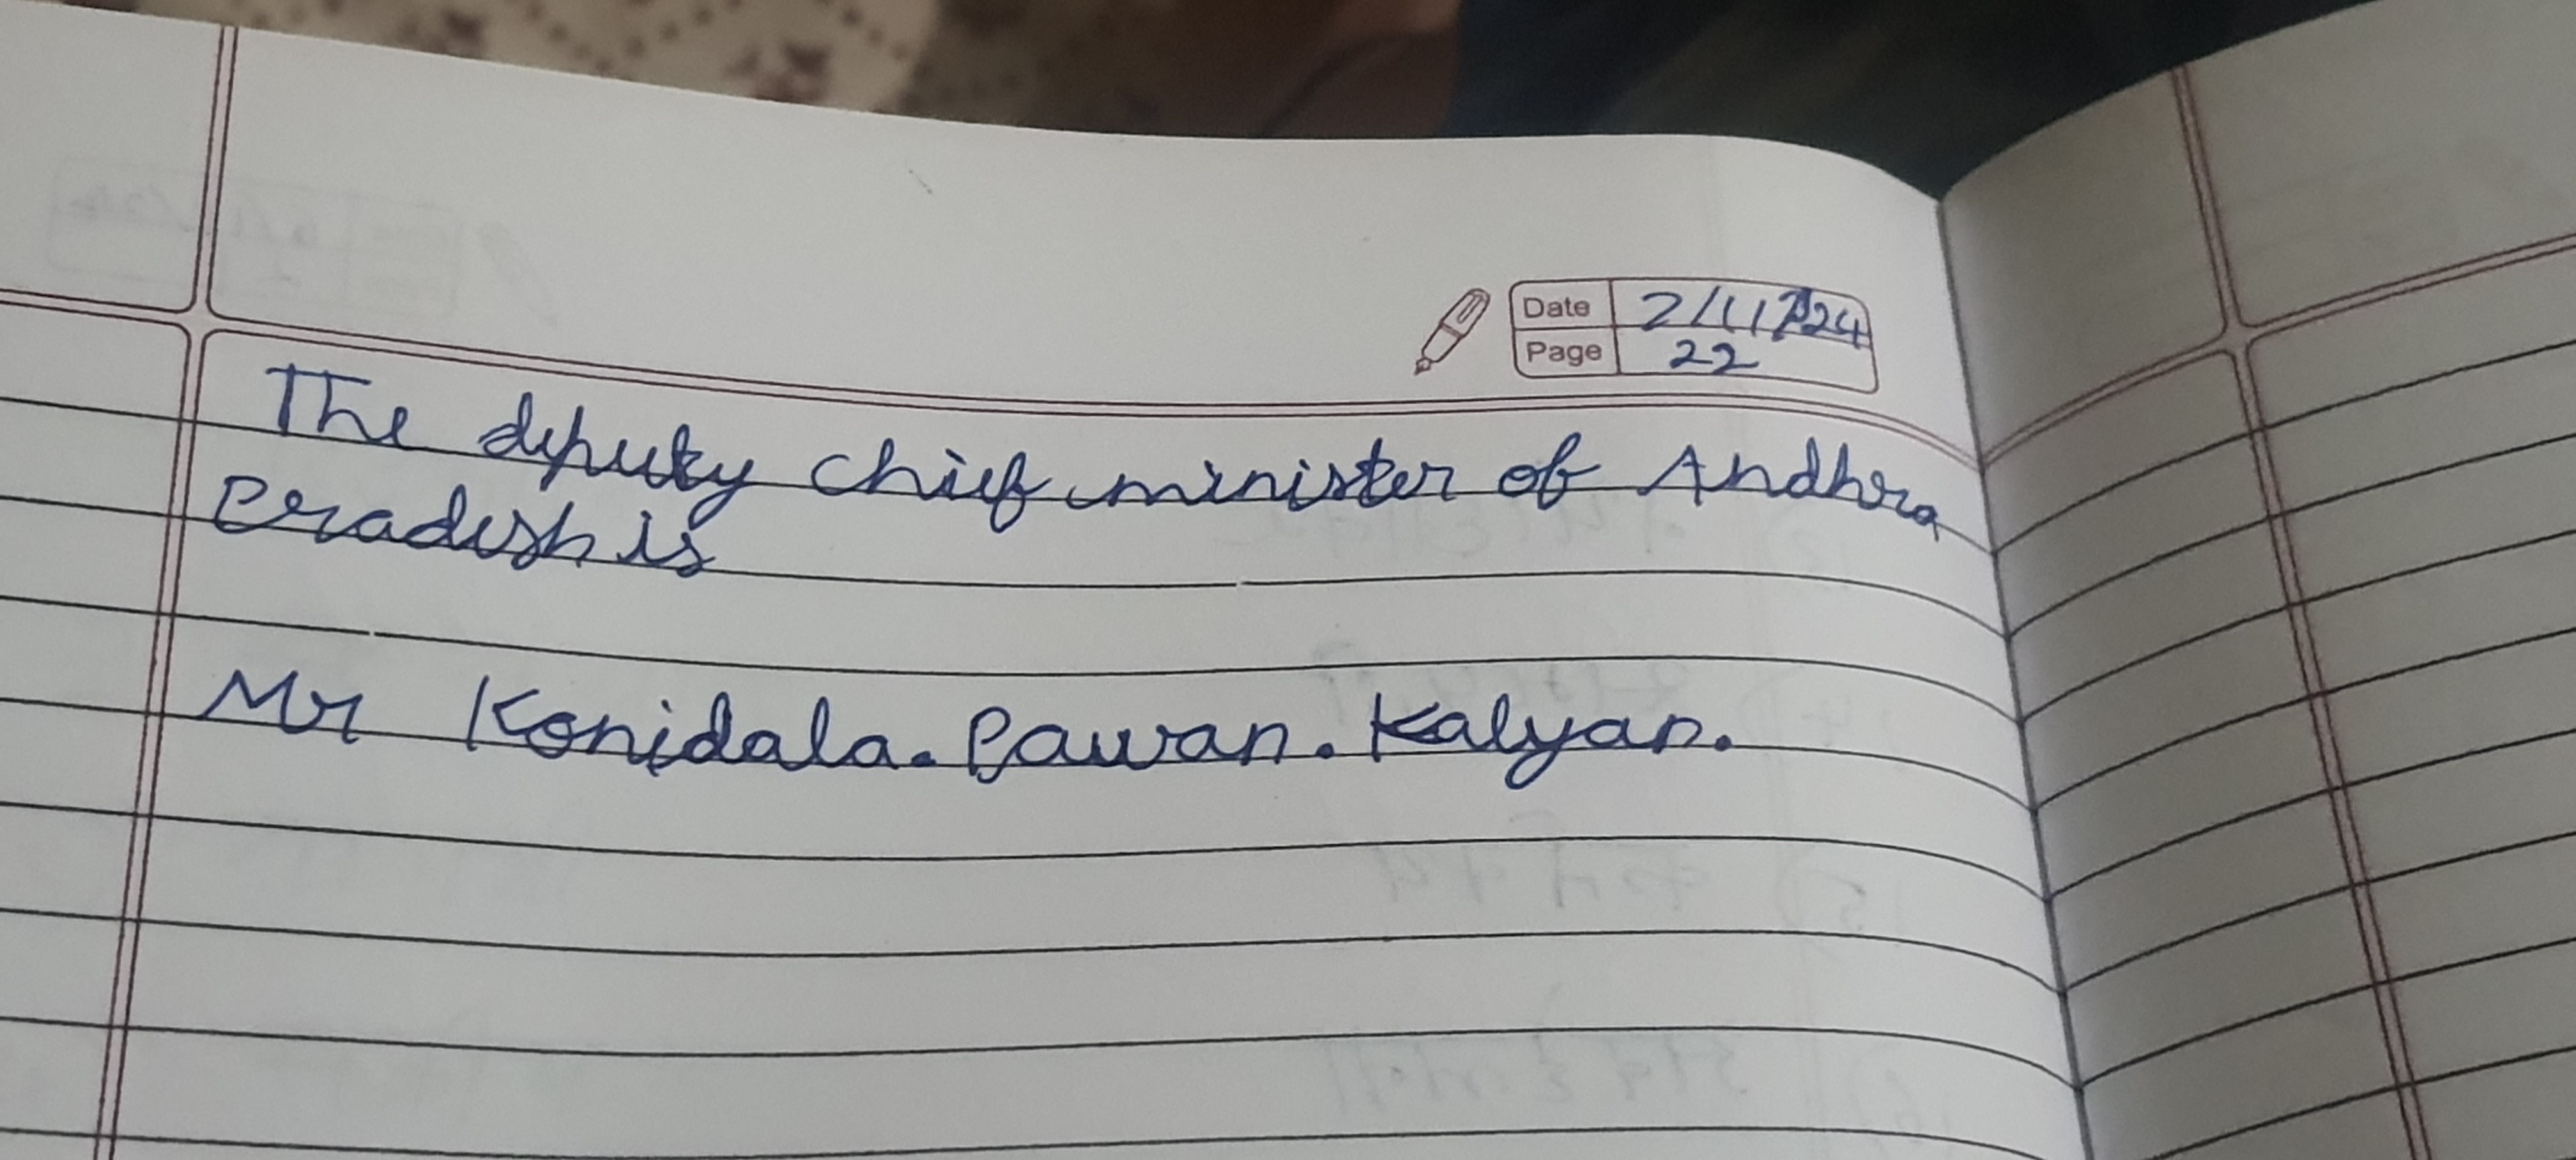 Date 2/11/24
Page 22
The deputy chief minister of Andhra
Pradesh is
Mr Konidala. Pawan. Kalyan.